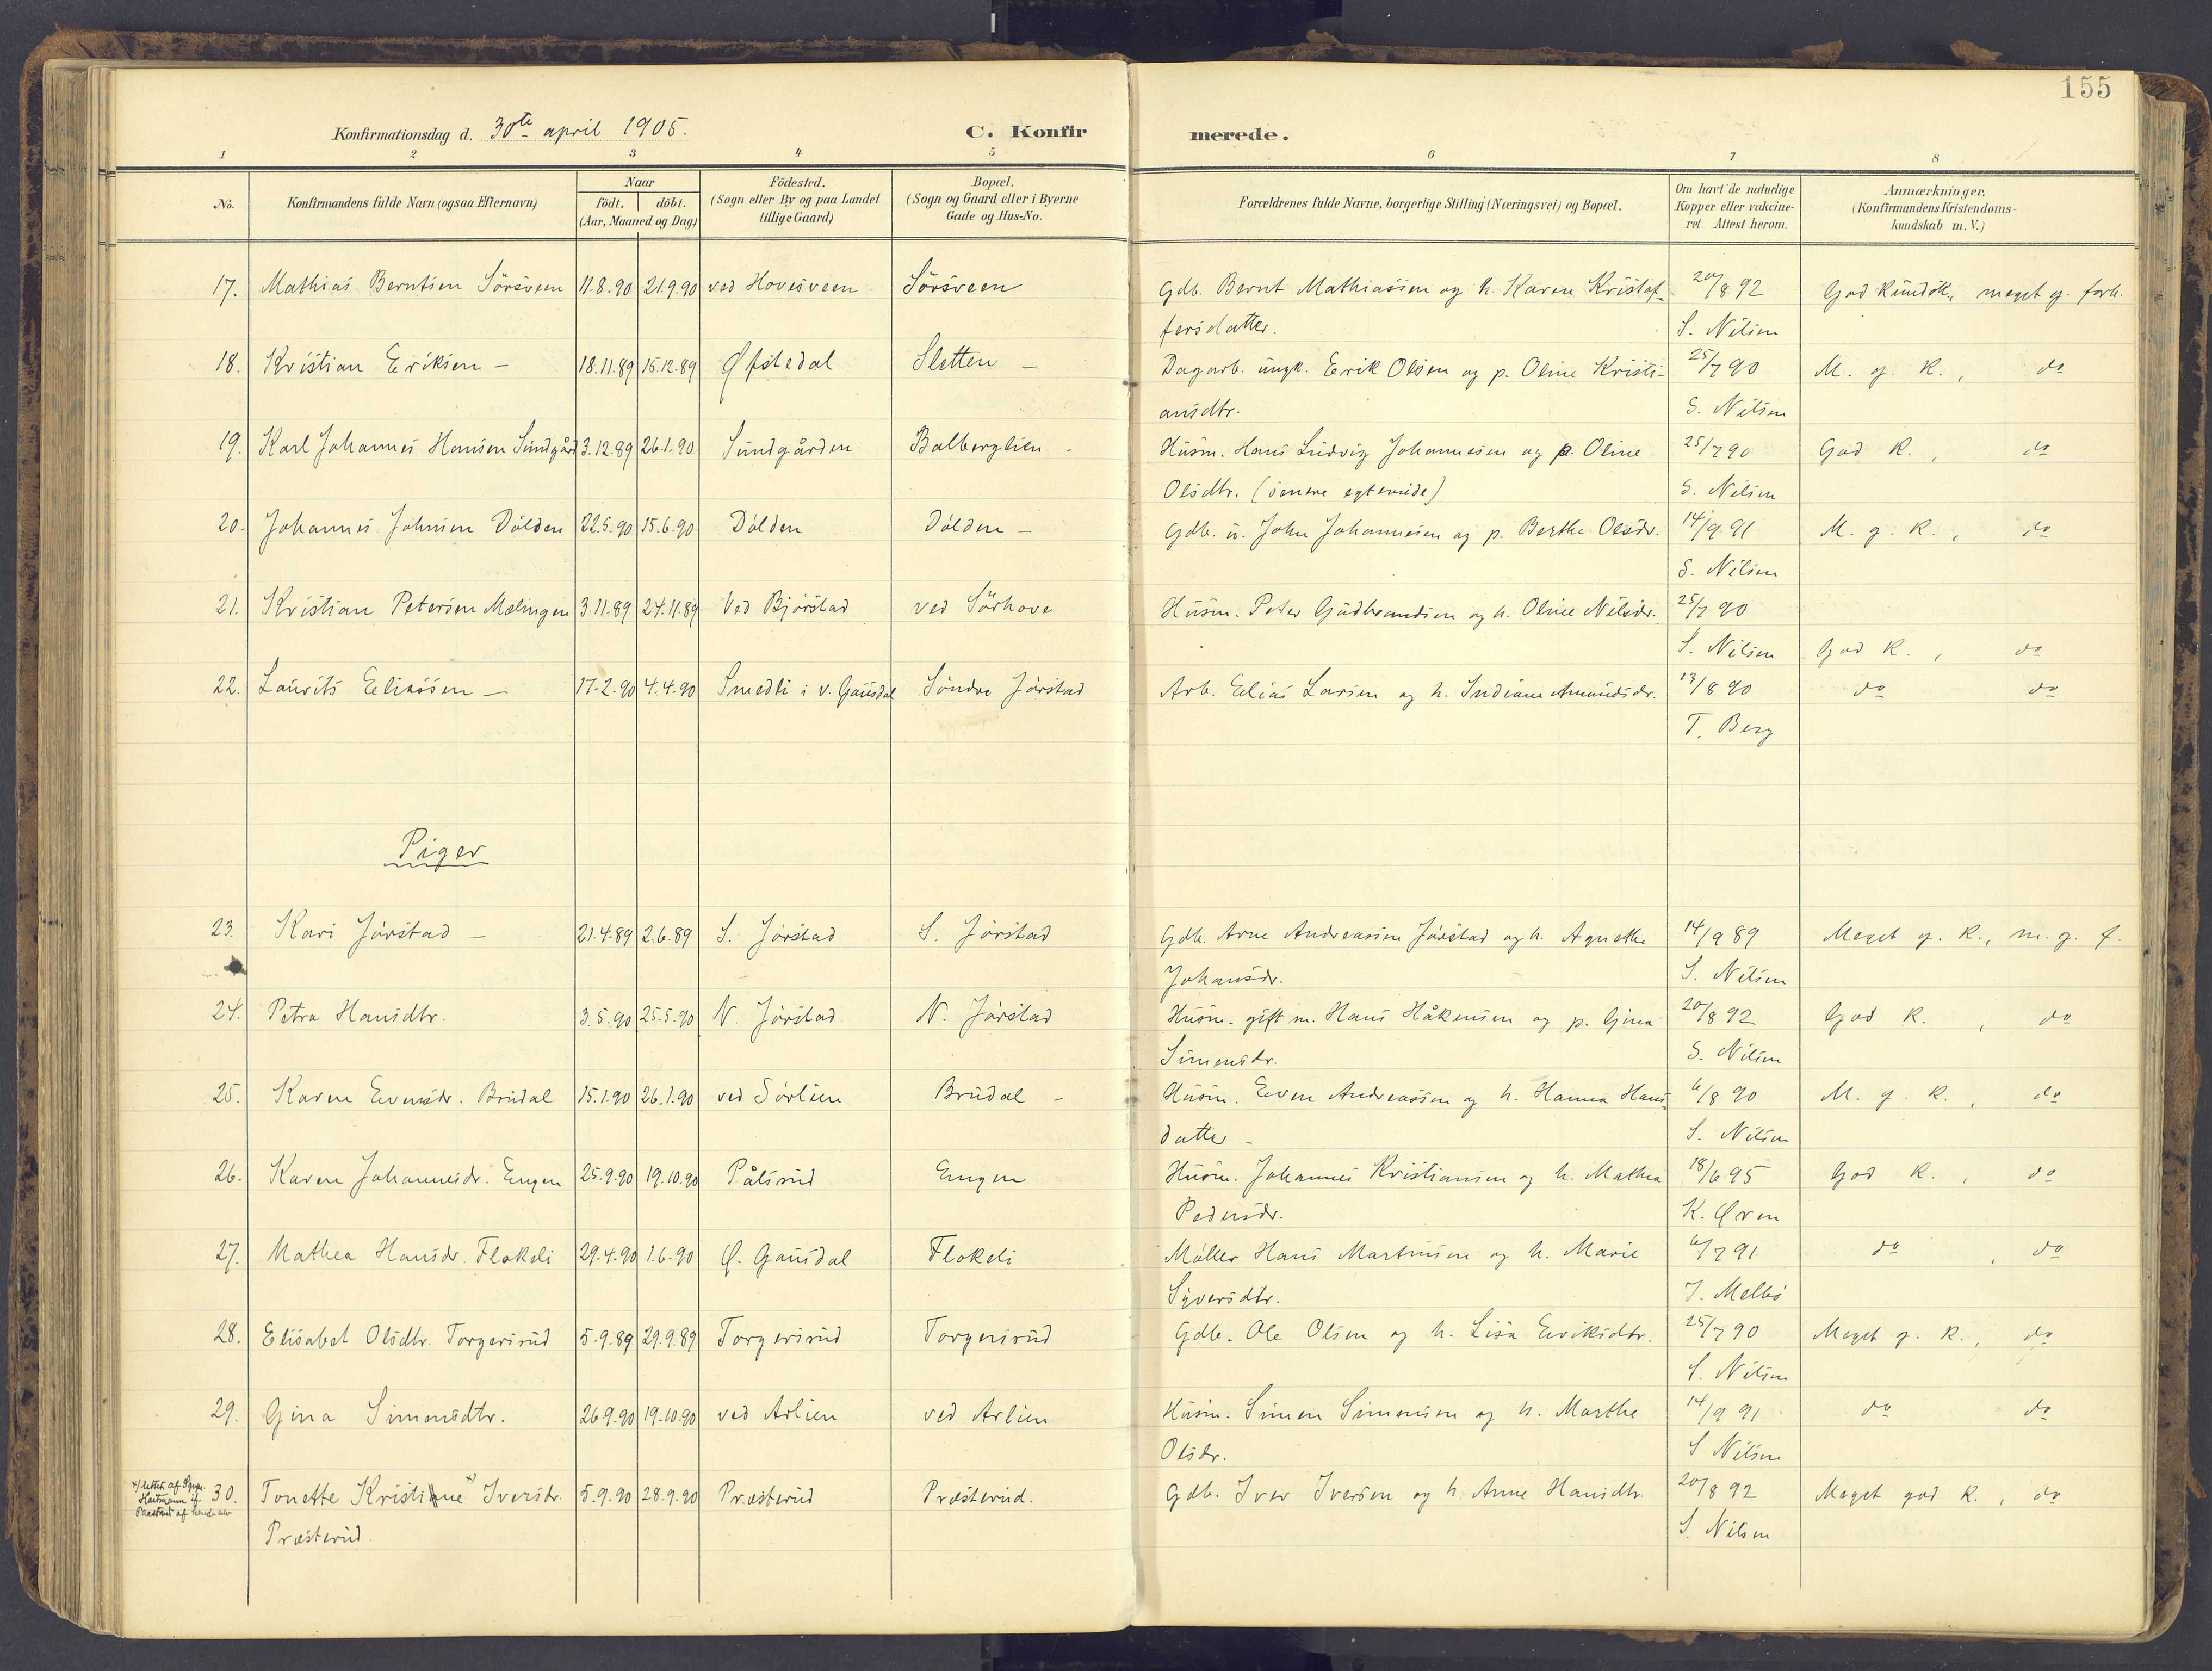 155
Konfirmationsdag d. 30te april 1905.
C. Konfirmerede.
1 2 3 4 5 6 7 8
No.
Konfirmandens fulde Navn (ogsaa Efternavn)
Naar
födt. döbt.
(Aar, Maaned og Dag)
Födested.
(Sogn eller By og paa Landet
tillige Gaard)
Bopæl.
(Sogn og Gaard eller i Byerne
Gade og Hus-No.
Forældrenes fulde Navne, borgerlige Stilling (Næringsvei) og Bopæl.
Om havt de naturlige
Kopper eller vakcine-
ret. Attest herom.
Anmærkninger.
(Konfirmandens Kristendoms-
kundskab m. V.)
17. Mathias Berntsen Sörsveen 11.8.90 21.9.90 ved Hovesveen Sörsveen Gdb. Bernt Mathiassen og h. Karen Kristof- 20/8 92 God kundsk., meget g. forh.
fersdatter. S. Nilsen
18. Kristian Eriksen – 18.11.89 15.12.89 Øfstedal Sletten – Dagarb. ungk. Erik Olsen og p. Oline Kristi- 25/7 90 M. g. K., do
ansdtr. S. Nilsen
19. Karl Johannes Hansen Sundgård 3.12.89 26.1.90 Sundgården Balberglien - Husm. Hans Ludvig Johannesen og p. Oline 25/7 90 God K., do
Olsdtr. (senere egteviede) S. Nilsen
20. Johannes Johnsen Dölden 22.5.90 15.6.90 Dölden Dölden – Gdb. u. John Johannesen og p. Berthe Olsdr. 14/9 91 M. g. K., do
S. Nilsen
21. Kristian Petersen Mælingen 3.11.89 24.11.89 Ved Bjørstad ved Sörhove Husm. Peter Gudbrandsen og h. Oline Nilsdr. 25/7 90
S. Nilsen God K., do
22. Laurits Eliassen – 17.2.90 4.4.90 Smedli i v. Gausdal Söndre Jörstad Arb. Elias Larsen og h. Indiane Amundsdr. 13/8 90 do do
T. Berg
Piger
23. Kari Jörstad – 21.4.89 2.6.89 S. Jörstad S. Jörstad Gdb. Arne Andreassen Jörstad og h. Agnethe 14/9 89 Meget g. K., m. g. f.
Johansdr. S. Nilsen
24. Petra Hansdtr. 3.5.90 25.5.90 N. Jörstad N. Jörstad Husm. gift m. Hans Håkensen og p. Gina 20/8 92 God K., do
Simensdr. S. Nilsen
25. Karen Evensdr. Brudal 15.1.90 26.1.90 ved Sörlien Brudal – Husm. Even Andreassen og h. Hanna Hans- 6/8 90 M. g. K., do
datter – S. Nilsen
26. Karen Johannesdr. Engen 25.9.90 19.10.90 Pålsrud Engen Husm. Johannes Kristiansen og h. Mathea 18/6 95 God K., do
Pedersdr. K. Øren
27. Mathea Hansdr. Flakeli 29.4.90 1.6.90 Ø. Gausdal Flokeli Möller Hans Martinsen og h. Marie 6/7 91 do, do
Syversdtr. J. Melbö
28. Elisabet Olsdtr. Torgersrud 5.9.89 29.9.89 Torgersrud Torgersrud Gdb. Ole Olsen og h. Lisa Eriksdtr. 25/7 90 Meget g. K., do
S. Nilsen
29. Gina Simensdtr. 26.9.90 19.10.90 ved Arlien ved Arlien Husm. Simen Simensen og h. Marthe 14/9 91 do do
Olsdr. S. Nilsen
x) rettet af Sgpr.
Hartmann if.
Paastand af hende selv
30. Tonette Kristine x) Iversdr. 5.9.90 28.9.90 Præsterud Præsterud. Gdb. Iver Iversen og h. Anne Hansdtr. 20/8 92 Meget god K., do
Præsterud. S. Nilsen